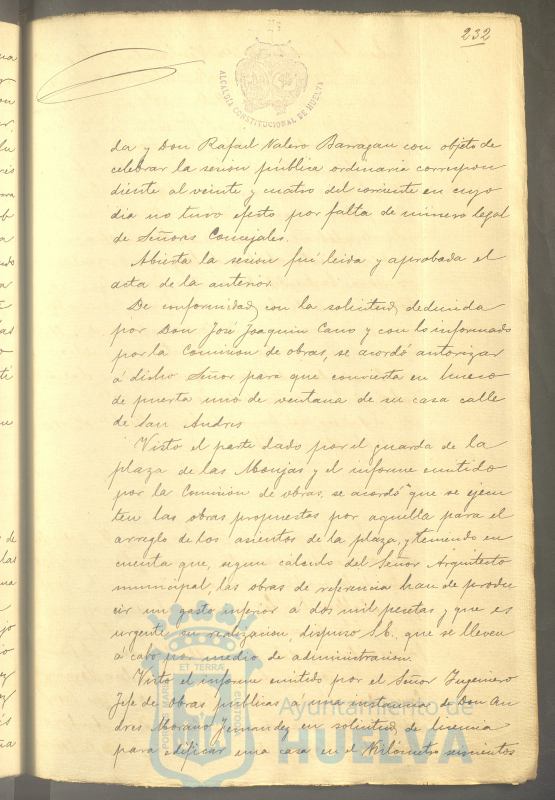 232
ALCALDIA CONSTITUCIONAL DE HUELVA
da y Don Rafael Valero Barragan con objeto de
celebrar la sesion pública ordinaria correspon
diente al veinte y cuatro del corriente en cuyo
dia no tuvo efecto por falta de número legal
de Señores Concejales.
Abierta la sesion fué leida y aprobada el
acta de la anterior.
De conformidad con la solicitud deducida
por Don José Joaquin Cano y con lo informado
por la Comision de obras, se acordó autorizar
á dicho Señor para que convierta en hueco
de puerta uno de ventana de su casa calle
de San Andres
Visto el parte dado por el guarda de la
plaza de las Monjas y el informe emitido
por la Comision de obras, se acordó que se ejecu
ten las obras propuestas por aquella para el
arreglo de los asientos de la plaza, y teniendo en
cuenta que, segun cálculo del Señor Arquitecto
municipal, las obras de referencia han de produ
cir un gasto inferior á dos mil pesetas y que es
urgente su realizacion, dispuso S.E. que se lleven
á cabo por medio de administracion.
Visto el informe emitido por el Señor Ingeniero
Jefe de obras públicas á una instancia de Don An
dres Morano Fernandez en solicitud de licencia
para edificar una casa en el Kilómetro seiscientos
Ayuntamiento de
HUELVA